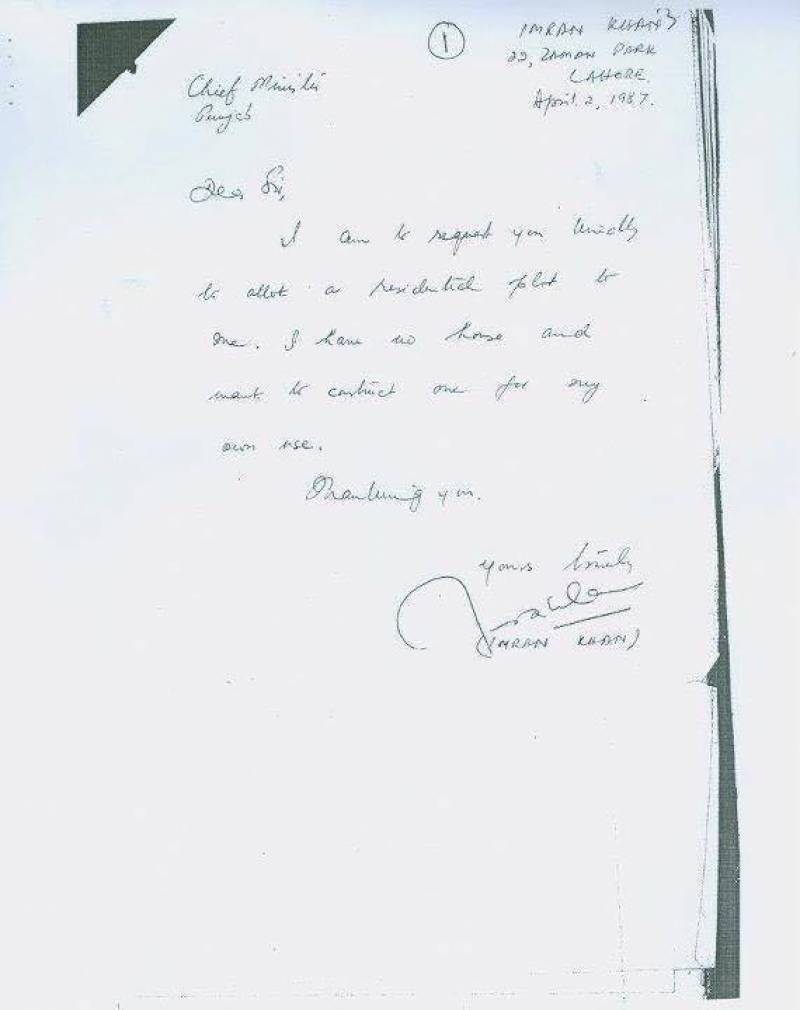 1
IMRAN KHAN
22, ZAMAN PARK
LAHORE.
April 2, 1987.
Chief Minister
Punjab
Dear Sir,
I am to request you kindly
to allot a residential plot to
me. I have no house and
want to construct one for my
own use.
Thanking you.
yours
(IMRAN KHAN)